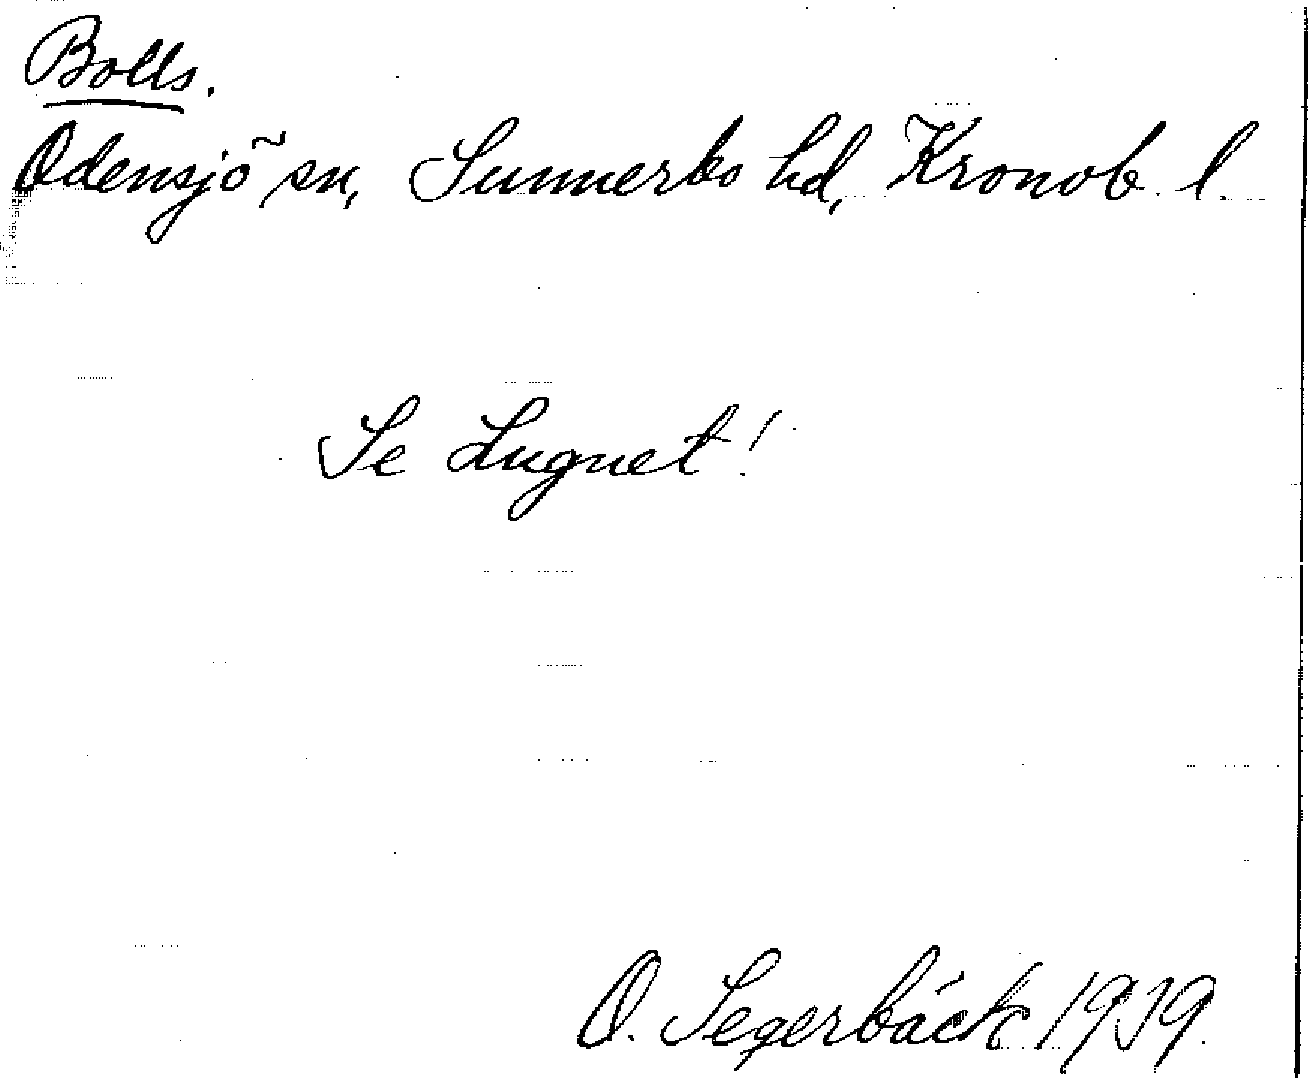 Bolls.
Odensjö sn, Sunnerbo hd, Kronob. l.
Se Lugnet!
O. Segerbäck 1939.